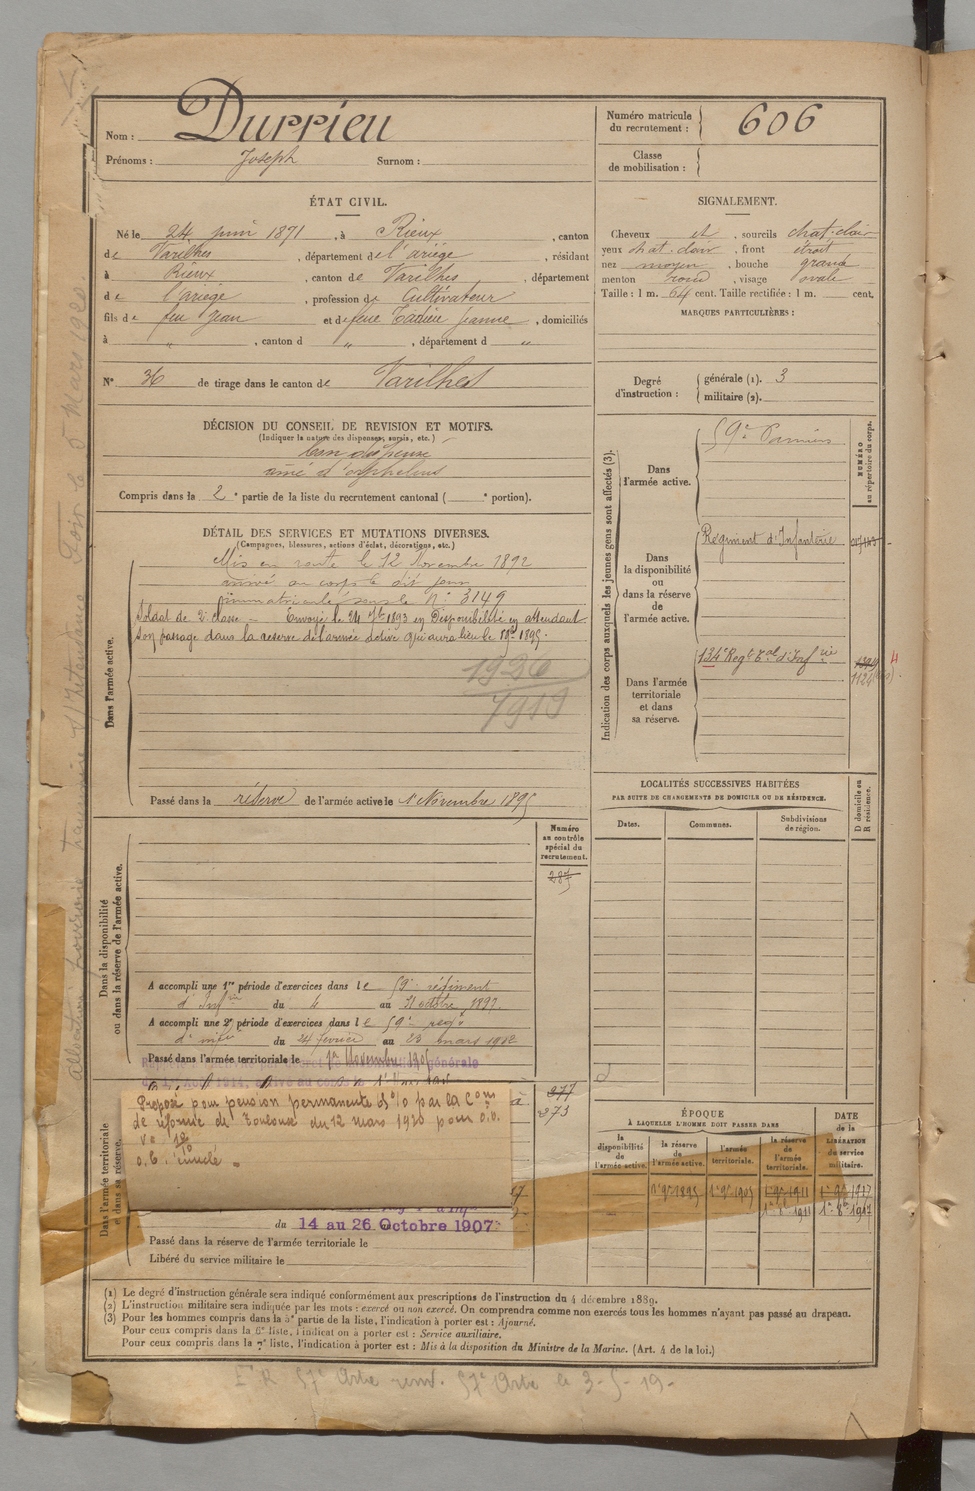 Nom : Durrieu
Prénoms : Joseph Surnom :
Numéro matricule du recrutement : 606
Classe de mobilisation :
ÉTAT CIVIL.
Né le 24 juin 1871, à Rieux, canton
de Varilhes, département de l'ariège, résidant
à Rieux, canton de Varilhes, département
de l'ariège, profession de Cultivateur
fils de feu Jean et de feue Jeanne, domiciliés
à " , canton d " , département d "
N° 36 de tirage dans le canton de Varilhes
SIGNALEMENT.
Cheveux et , sourcils chat. clair
yeux chat. clair , front étroit
nez moyen , bouche grande
menton rond , visage ovale
Taille : 1 m. 64 cent. Taille rectifiée : 1 m. cent.
MARQUES PARTICULIÈRES :
Degré d'instruction : générale (1). 3
militaire (2).
DÉCISION DU CONSEIL DE REVISION ET MOTIFS.
(Indiquer la nature des dispenses, sursis, etc.)
Bon dispensé
aîné d'orphelins
Compris dans la 2e partie de la liste du recrutement cantonal ( e portion).
DÉTAIL DES SERVICES ET MUTATIONS DIVERSES.
(Campagnes, blessures, actions d'éclat, décorations, etc.)
Dans l'armée active.
Mis en route le 12 Novembre 1892
arrivé au corps le dit jour
immatriculé sous le N° 3149
Soldat de 2e classe – Envoyé le 24 7bre 1893 en Disponibilité en attendant
son passage dans la réserve de l'armée active qui aura lieu le 1895.
1926
Passé dans la réserve de l'armée active le 1er Novembre 1895
Indication des corps auxquels les jeunes gens sont affectés (3).
NUMÉRO au répertoire du corps.
Dans l'armée active.
59e Pamiers
Dans la disponibilité ou dans la réserve de l'armée active.
Régiment d'Infanterie
Dans l'armée territoriale et dans sa réserve.
134e Regt Tal d'Infrie
LOCALITÉS SUCCESSIVES HABITÉES
PAR SUITE DE CHANGEMENTS DE DOMICILE OU DE RÉSIDENCE.
Dates. Communes. Subdivisions de région. D domicile ou R résidence.
Dans la disponibilité ou dans la réserve de l'armée active.
Numéro au contrôle spécial du recrutement.
287
A accompli une 1re période d'exercices dans le 59e régiment
d'Infrie du 4 au 31 octobre
A accompli une 2e période d'exercices dans le 59e regt
d'infie du 24 février au 23 mars 1902
Passé dans l'armée territoriale le 1er Novembre
277
273
Dans l'armée territoriale et dans sa réserve.
Proposé pour pension permanente par la Com
de réforme de Toulouse du 12 mars 1920 pour
du 14 au 26 Octobre 1907
Passé dans la réserve de l'armée territoriale le
Libéré du service militaire le
ÉPOQUE
À LAQUELLE L'HOMME DOIT PASSER DANS
la disponibilité de l'armée active. la réserve de l'armée active. l'armée territoriale. la réserve de l'armée territoriale.
DATE de la LIBÉRATION du service militaire.
(1) Le degré d'instruction générale sera indiqué conformément aux prescriptions de l'instruction du 4 décembre 1889.
(2) L'instruction militaire sera indiquée par les mots : exercé ou non exercé. On comprendra comme non exercés tous les hommes n'ayant pas passé au drapeau.
(3) Pour les hommes compris dans la 5e partie de la liste, l'indication à porter est : Ajourné.
Pour ceux compris dans la 6e liste, l'indication à porter est : Service auxiliaire.
Pour ceux compris dans la 7e liste, l'indication à porter est : Mis à la disposition du Ministre de la Marine. (Art. 4 de la loi.)